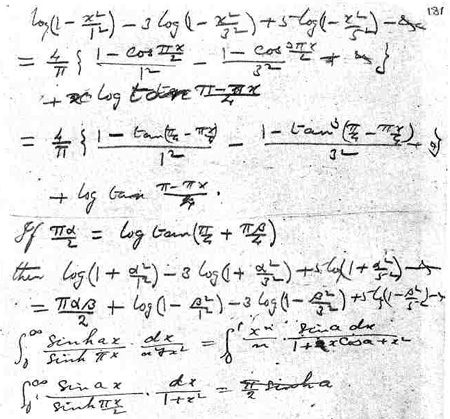 131
log(1 - x²/1²) - 3 log(1 - x²/3²) + 5 log(1 - x²/5²) - &c
= 4/π { (1 - cos πx/2)/1² - (1 - cos 3πx/2)/3² + & }
+ x log tan (π - πx)/4
= 4/π { (1 - tan(π/4 - πx/4))/1² - (1 - tan³(π/4 - πx/4))/3² + & }
+ log tan (π - πx)/4.
If πα/2 = log tan(π/4 + πβ/4)
then log(1 + α²/1²) - 3 log(1 + α²/3²) + 5 log(1 + α²/5²) - &
= παβ/2 + log(1 - β²/1²) - 3 log(1 - β²/3²) + 5 log(1 - β²/5²) - &
∫₀^∞ sinh ax / sinh πx · dx / = ∫₀¹ xⁿ/n · sin a dx / (1 + x cos a + x²)
∫₀^∞ sin ax / sinh πx/2 · dx/(1 + x²) = π/2 sinh a